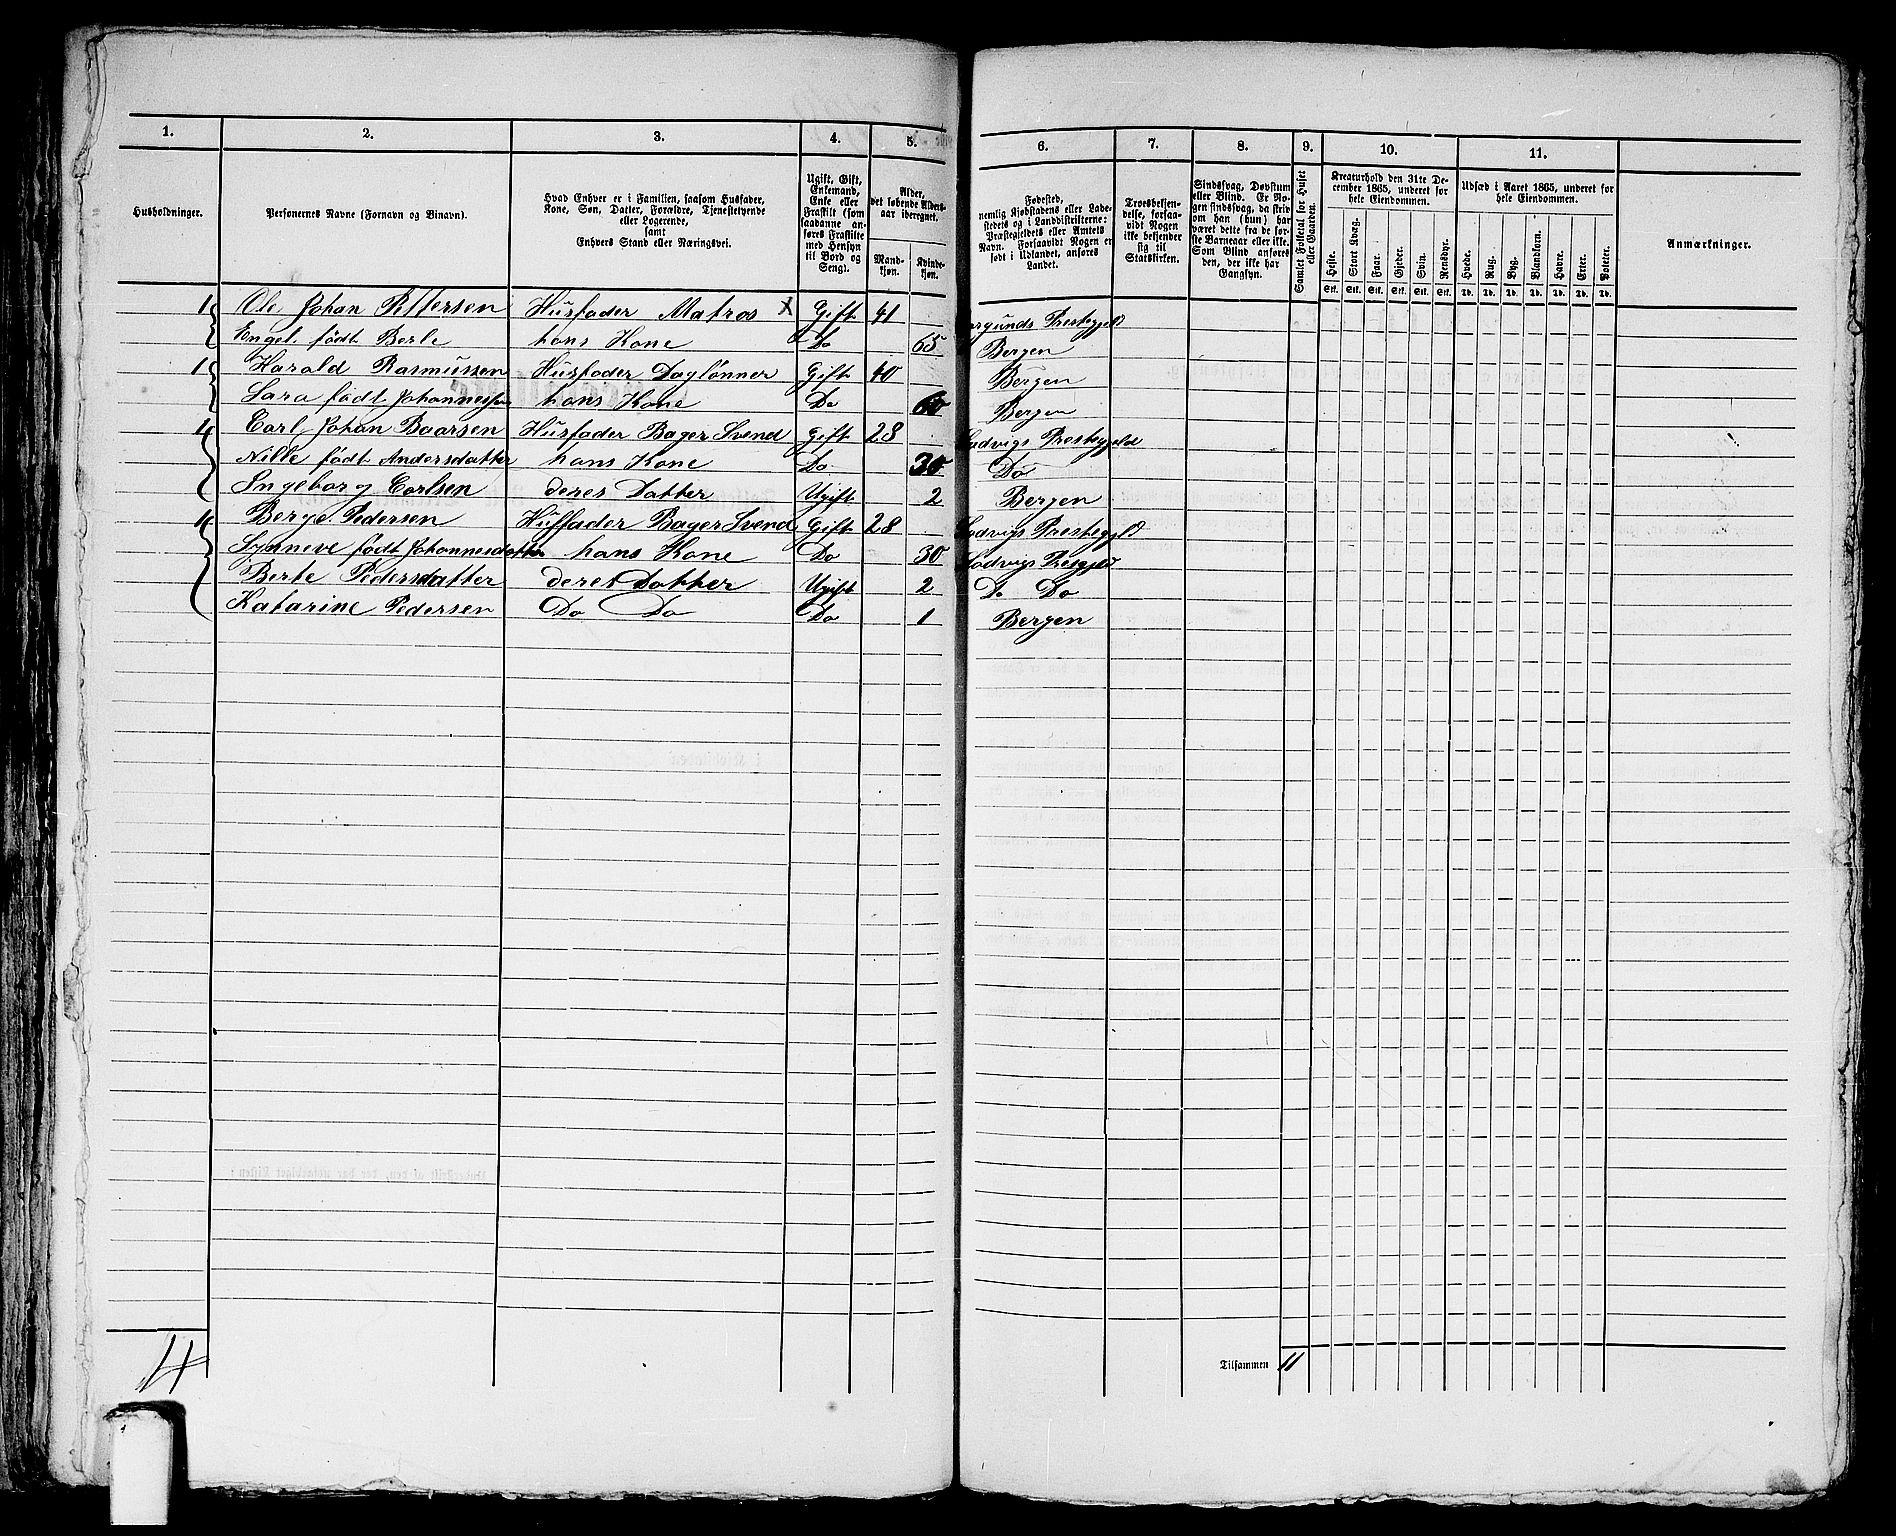 1. 2. 3. 4. 5. 6. 7. 8. 9. 10. 11.
Husholdninger.
Personernes Navne (Fornavn og Binavn).
Hvad Enhver er i Familien, saasom Husfader,
Kone, Søn, Datter, Forældre, Tjenestetyende
eller Logerende,
samt
Enhvers Stand eller Næringsvei.
Ugift, Gift,
Enkemand,
Enke eller
Fraskilt (som
saadanne an-
føres Fraskilte
med Hensyn
til Bord og
Seng).
Alder,
det løbende Alders-
aar iberegnet.
Mand-
kjøn.
Kvinde-
kjøn.
Fødested,
nemlig Kjøbstadens eller Lade-
stedets og i Landdistrikterne:
Præstegjeldets eller Amtets
Navn. Forsaavidt Nogen er
født i Udlandet, anføres
Landet.
Troesbekjen-
delse, forsaa-
vidt Nogen
ikke bekjender
sig til
Statskirken.
Sindssvag, Døvstum
eller Blind. Er No-
gen sindssvag, da skriv
om han (hun) har
været dette fra de før-
ste Barneaar eller ikke.
Som Blind anføres
den, der ikke har
Gangsyn.
Samlet Folketal for Huset
eller Gaarden.
Kreaturhold den 31te De-
cember 1865, underet for
hele Eiendommen.
Heste. Stort Kvæg. Faar. Gjeder. Svin. Rensdyr.
Stk. Stk. Stk. Stk. Stk. Stk.
Udsæd i Aaret 1865, underet for
hele Eiendommen.
Hvede. Rug. Byg. Blandkorn. Havre. Erter. Poteter.
Td. Td. Td. Td. Td. Td. Td.
Anmærkninger.
1 Ole Johan Pettersen Husfader Matros X Gift 41 Prestegjeld
Engel født Berle hans Kone Do 65 Bergen
1 Harald Rasmussen Husfader Daglønner Gift 40 Bergen
Sara født Johannessen hans Kone Do 60 Bergen
1 Carl Johan Baarsen Husfader Bager Svend Gift 28 Ladvigs Prestegjeld
Nille født Andersdatter hans Kone Do 30 Do
Ingeborg Carlsen deres Datter Ugift 2 Bergen
1 Berge Pedersen Husfader Bager Svend Gift 28 Ladvigs Prestegjeld
Synneve født Johannesdatter hans Kone Do 30 Ladvigs Presgjeld
Berte Pedersdatter deres Datter Ugift 2 Do Do
Katarine Pedersen Do Do Do 1 Bergen
4
Tilsammen 11